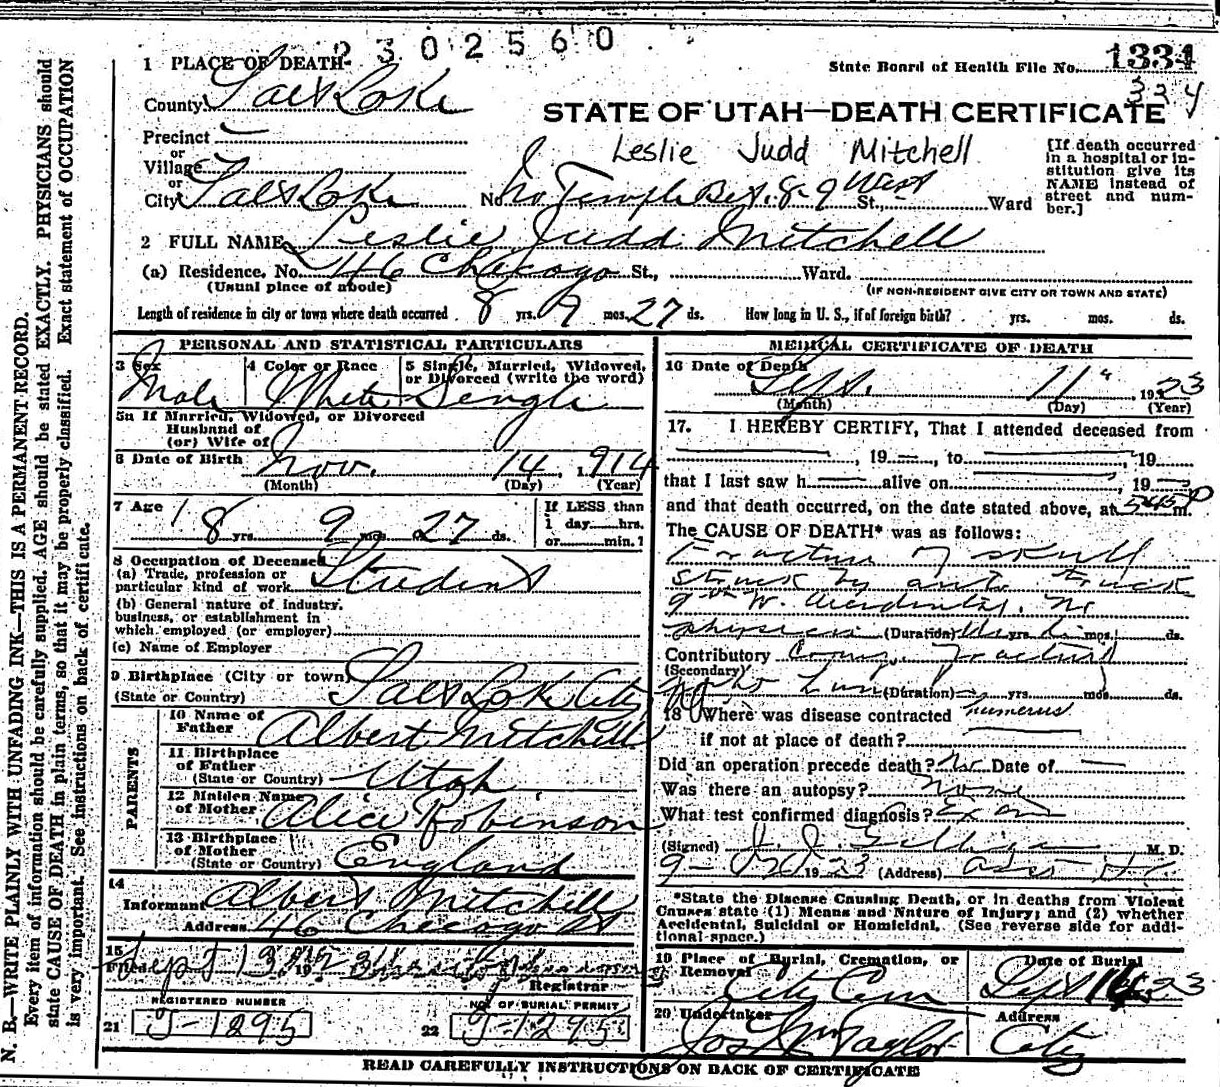 2302560
1 PLACE OF DEATH
State Board of Health File No. 1334
334
County Salt Lake
STATE OF UTAH—DEATH CERTIFICATE
Precinct
or
Leslie Judd Mitchell
[If death occurred in a hospital or institution give its NAME instead of street and number.]
Village
or
City Salt Lake No. No Temple Bet. 8-9 West St., Ward
2 FULL NAME Leslie Judd Mitchell
(a) Residence, No. 46 Chicago St., Ward.
(Usual place of abode) (IF NON-RESIDENT GIVE CITY OR TOWN AND STATE)
Length of residence in city or town where death occurred 8 yrs. 9 mos. 27 ds. How long in U. S., if of foreign birth? yrs. mos. ds.
PERSONAL AND STATISTICAL PARTICULARS
3 Sex Male
4 Color or Race White
5 Single, Married, Widowed, or Divorced (write the word) Single
5a If Married, Widowed, or Divorced
Husband of
(or) Wife of
6 Date of Birth Nov. 14, 1914
(Month) (Day) (Year)
7 Age 8 yrs. 9 mos. 27 ds.
If LESS than
1 day hrs.
or min.?
8 Occupation of Deceased
(a) Trade, profession or
particular kind of work Student
(b) General nature of industry,
business, or establishment in
which employed (or employer)
(c) Name of Employer
9 Birthplace (City or town) Salt Lake City
(State or Country)
PARENTS
10 Name of Father Albert Mitchell
11 Birthplace of Father
(State or Country) Utah
12 Maiden Name of Mother Alice Robinson
13 Birthplace of Mother
(State or Country) England
14
Informant Albert Mitchell
Address 46 Chicago St
15
Filed Sept 13 1923
Registrar
REGISTERED NUMBER
21 J-1895
NO. OF BURIAL PERMIT
22 J-1295
MEDICAL CERTIFICATE OF DEATH
16 Date of Death Sept. 11, 1923
(Month) (Day) (Year)
17. I HEREBY CERTIFY, That I attended deceased from
, 19 , to , 19
that I last saw h alive on , 19
and that death occurred, on the date stated above, at 545 P m.
The CAUSE OF DEATH* was as follows:
Fracture of skull
struck by auto truck
9th W. Accidental. No
physician (Duration) yrs. mos. ds.
Contributory Comp. Fracture
(Secondary)
(Duration) yrs. mos. ds.
humerus
18 Where was disease contracted
if not at place of death?
Did an operation precede death? No Date of
Was there an autopsy? None
What test confirmed diagnosis? Exam
(Signed) M. D.
1923 (Address)
*State the Disease Causing Death, or in deaths from Violent
Causes state (1) Means and Nature of Injury; and (2) whether
Accidental, Suicidal or Homicidal. (See reverse side for addi-
tional space.)
19 Place of Burial, Cremation, or Removal City Cem
Date of Burial Sept 14 1923
20 Undertaker Jos Wm Taylor
Address City
READ CAREFULLY INSTRUCTIONS ON BACK OF CERTIFICATE
N. B.—WRITE PLAINLY WITH UNFADING INK—THIS IS A PERMANENT RECORD.
Every item of information should be carefully supplied. AGE should be stated EXACTLY. PHYSICIANS should
state CAUSE OF DEATH in plain terms, so that it may be properly classified. Exact statement of OCCUPATION
is very important. See instructions on back of certificate.